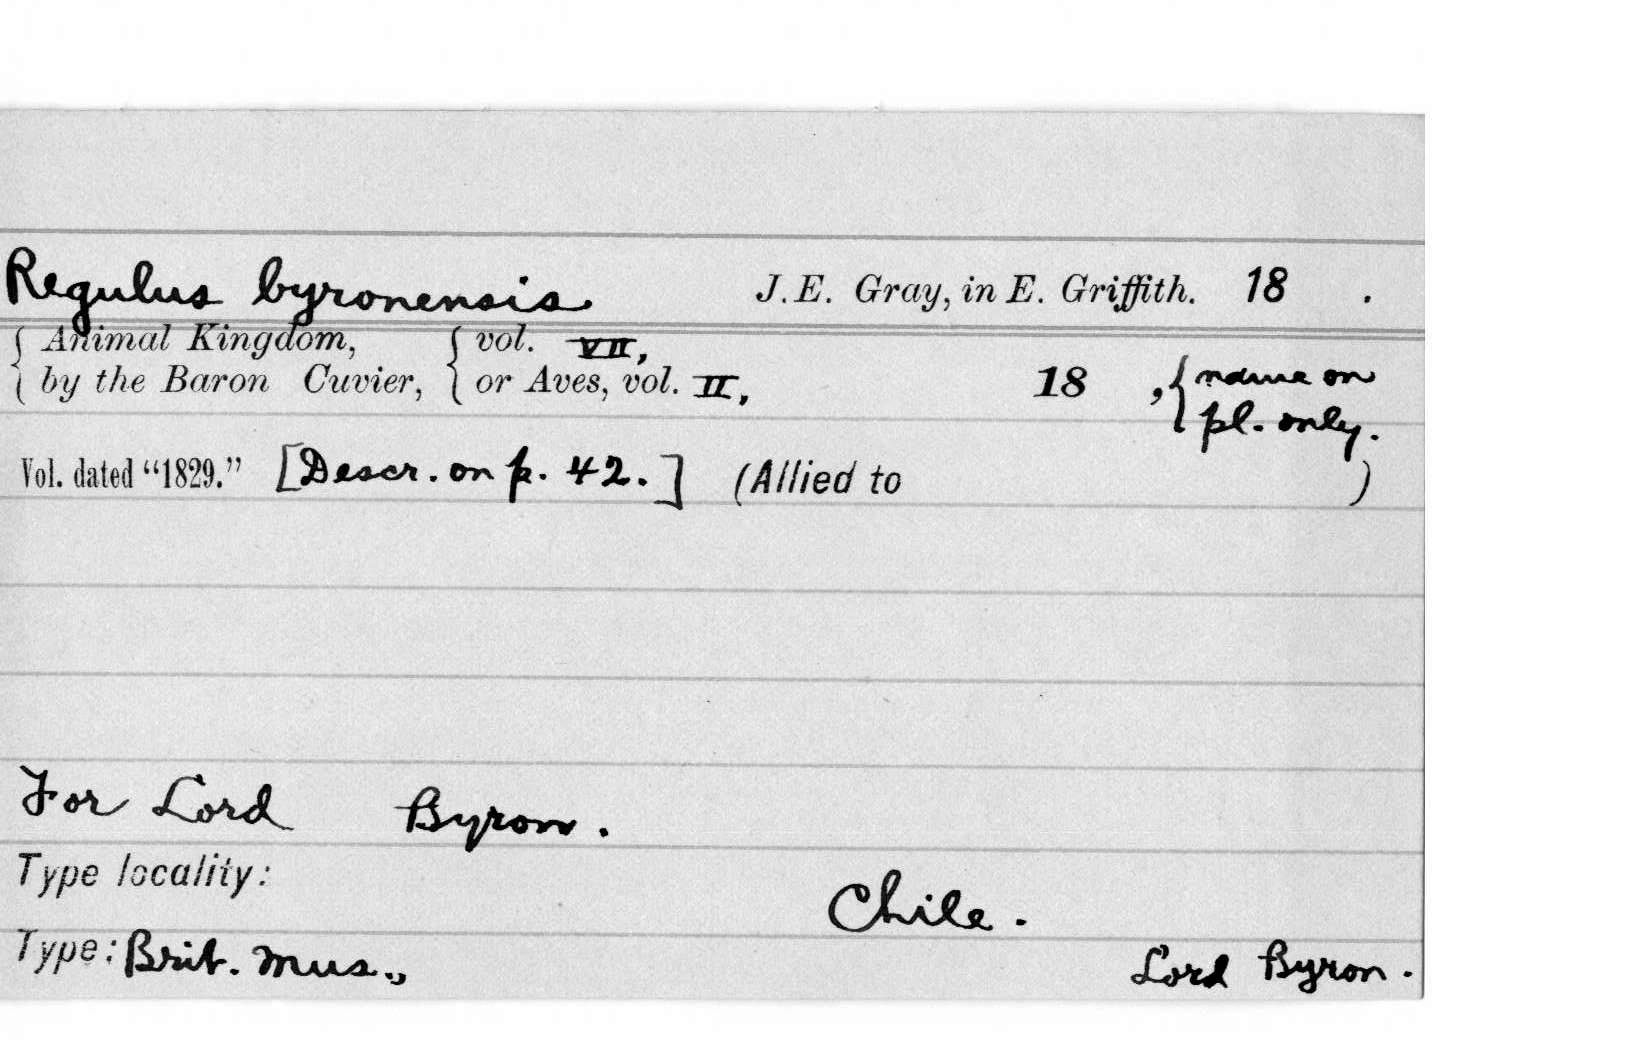 Regulus byronensis J.E. Gray, in E. Griffith. 18 .
{ Animal Kingdom, { vol. VII,
{ by the Baron Cuvier, { or Aves, vol. II, 18 , { name on
pl. only.
Vol. dated “1829.” [Descr. on p. 42.] (Allied to )
For Lord Byron.
Type locality:
Chile.
Type: Brit. Mus.,
Lord Byron.